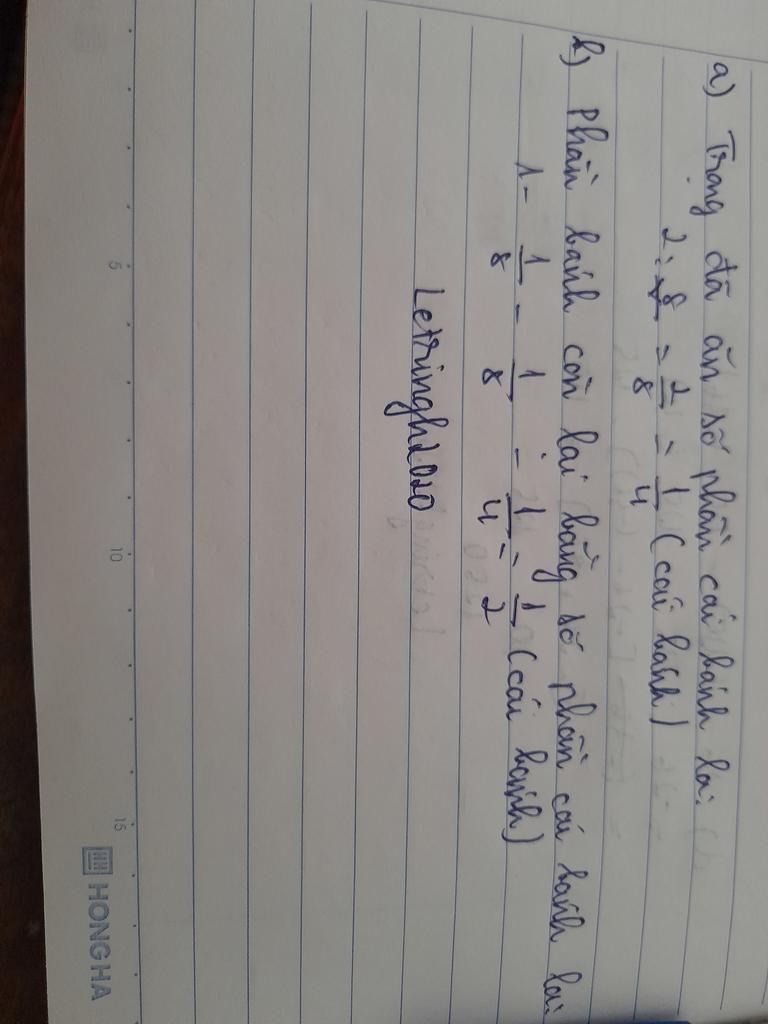 a) Trọng đã ăn số phần cái bánh là:
2 : 8 = 2/8 = 1/4 (cái bánh)
b) Phần bánh còn lại bằng số phần cái bánh là:
1 - 1/8 - 1/8 - 1/4 = 1/2 (cái bánh)
Letringh2020
5 10 15
HONGHA